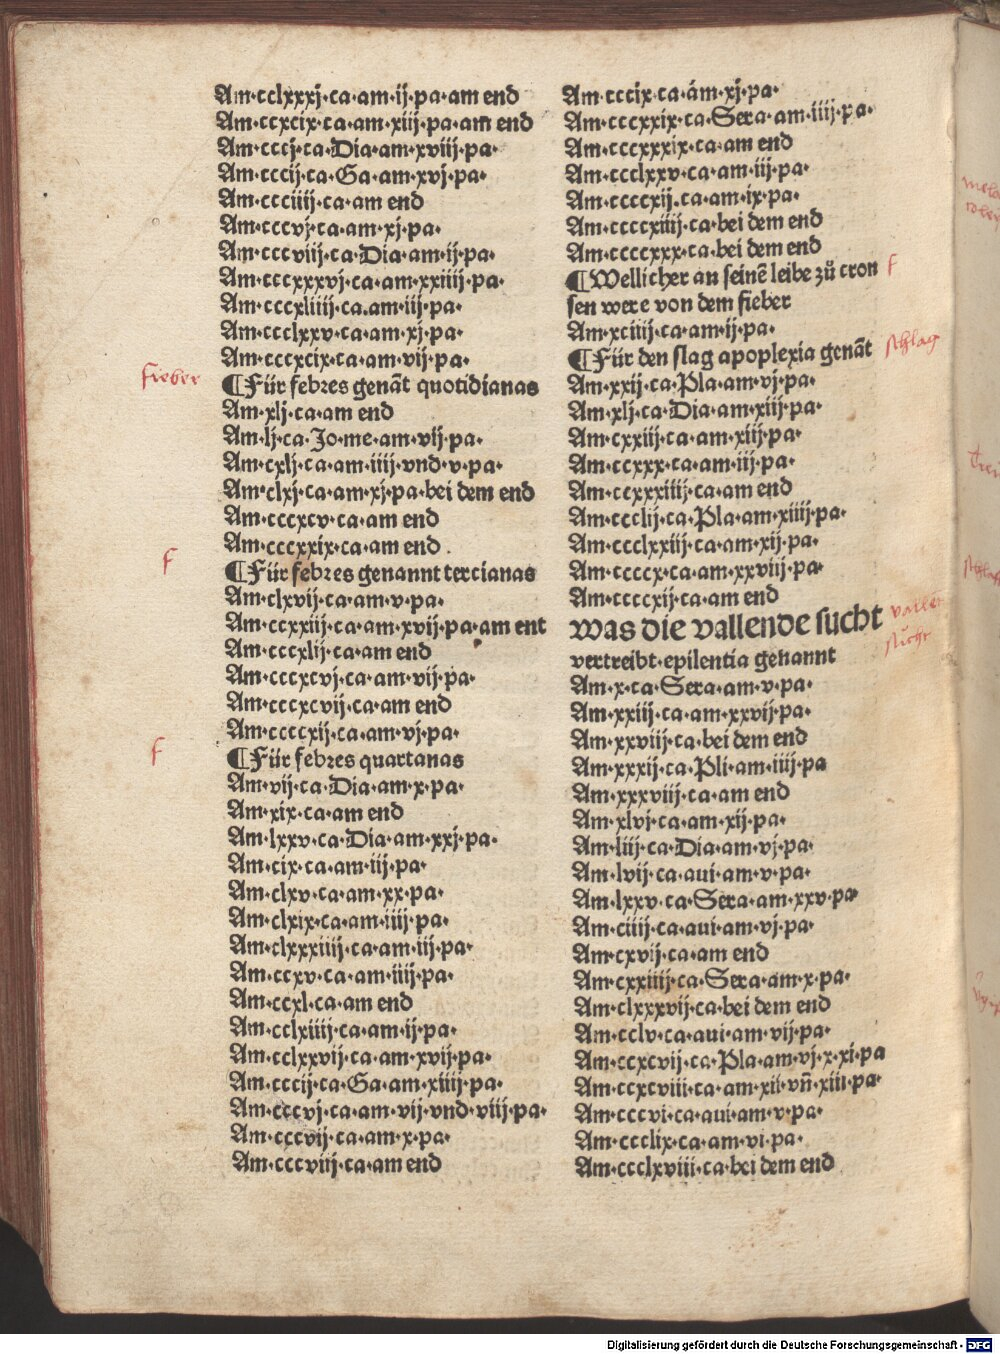 Am·cclxxxj·ca·am·ij·pa·am end
Am·ccxcix·ca·am·xiij·pa·am end
Am·cccj·ca·Dia·am·xviij·pa·
Am·cccij·ca·Ga·am·xvj·pa·
Am·ccciiij·ca·am end
Am·cccvj·ca·am·xj·pa·
Am·cccviij·ca·Dia·am·ij·pa·
Am·cccxxxvj·ca·am·xxiiij·pa·
Am·cccxliiij·ca.am·iij·pa·
Am·ccclxxv·ca·am·xj·pa·
Am·cccxcix·ca·am·vij·pa·
fieber
¶Für febres genāt quotidianas
Am·xlj·ca·am end
Am·lj·ca·Jo·me·am·vij·pa·
Am·cxlj·ca·am·iiij·vnd·v·pa·
Am·clxj·ca·am·xj·pa·bei dem end
Am·cccxcv·ca·am end
Am·cccxxix·ca·am end·
f
¶Für febres genannt tercianas
Am·clxvij·ca·am·v·pa·
Am·ccxxiij·ca·am·xvij·pa·am ent
Am·cccxlij·ca·am end
Am·cccxcvj·ca·am·vij·pa·
Am·cccxcvij·ca·am end
Am·ccccxij·ca·am·vj·pa·
f
¶Für febres quartanas
Am·vij·ca·Dia·am·x·pa·
Am·xix·ca·am end
Am·lxxv·ca·Dia·am·xxj·pa·
Am·cix·ca·am·iij·pa·
Am·clxv·ca·am·xx·pa·
Am·clxix·ca·am·iiij·pa·
Am·clxxxiiij·ca·am·iij·pa·
Am·ccxv·ca·am·iiij·pa·
Am·ccxl·ca·am end
Am·cclxiiij·ca·am·ij·pa·
Am·cclxxvij·ca·am·xvij·pa·
Am·cccij·ca·Ga·am·xiiij·pa·
Am·cccvj·ca·am·vij·vnd·viij·pa·
Am·cccvij·ca·am·x·pa·
Am·cccviij·ca·am end
Am·cccix·ca·am·xj·pa·
Am·cccxxix·ca·Sera·am·iiij·pa·
Am·cccxxxix·ca·am end
Am·ccclxxv·ca·am·iij·pa·
Am·ccccxij·ca·am·ix·pa·
Am·ccccxiiij·ca·bei dem end
Am·ccccxxx·ca·bei dem end
¶Wellicher an seinē leibe zů cron
f
sen were von dem fieber
Am·xciiij·ca·am·ij·pa·
¶Für den slag apoplexia genāt
schlag
Am·xxij·ca·Pla·am·vj·pa·
Am·xlj·ca·Dia·am·xiij·pa·
Am·cxxiij·ca·am·xiij·pa·
Am·ccxxx·ca·am·iij·pa·
Am·ccxxxiiij·ca·am end
Am·ccclij·ca·Pla·am·xiiij·pa·
Am·ccclxxiij·ca·am·xij·pa·
Am·ccccx·ca·am·xxviij·pa·
Am·ccccxij·ca·am end
Was die vallende sucht
sucht
vertreibt·epilentia genannt
Am·x·ca·Sera·am·v·pa·
Am·xxiij·ca·am·xxvij·pa·
Am·xxviij·ca·bei dem end
Am·xxxij·ca·Pli·am·iiij·pa
Am·xxxviij·ca·am end
Am·xlvj·ca·am·xij·pa·
Am·liij·ca·Dia·am·vj·pa·
Am·lvij·ca·aui·am·v·pa·
Am·lxxv·ca·Sera·am·xxv·pa·
Am·ciiij·ca·aui·am·vj·pa·
Am·cxvij·ca·am end
Am·cxxiiij·ca·Sera·am·x·pa·
Am·clxxxvij·ca·bei dem end
Am·cclv·ca·aui·am·vij·pa·
Am·ccxcvij·ca·Pla·am·vj·x·xi·pa
Am·ccxcviii·ca·am·xii·vñ·xiii·pa·
Am·cccvi·ca·aui·am·v·pa·
Am·ccclix·ca·am·vi·pa·
Am·ccclxviii·ca·bei dem end
Digitalisierung gefördert durch die Deutsche Forschungsgemeinschaft - DFG